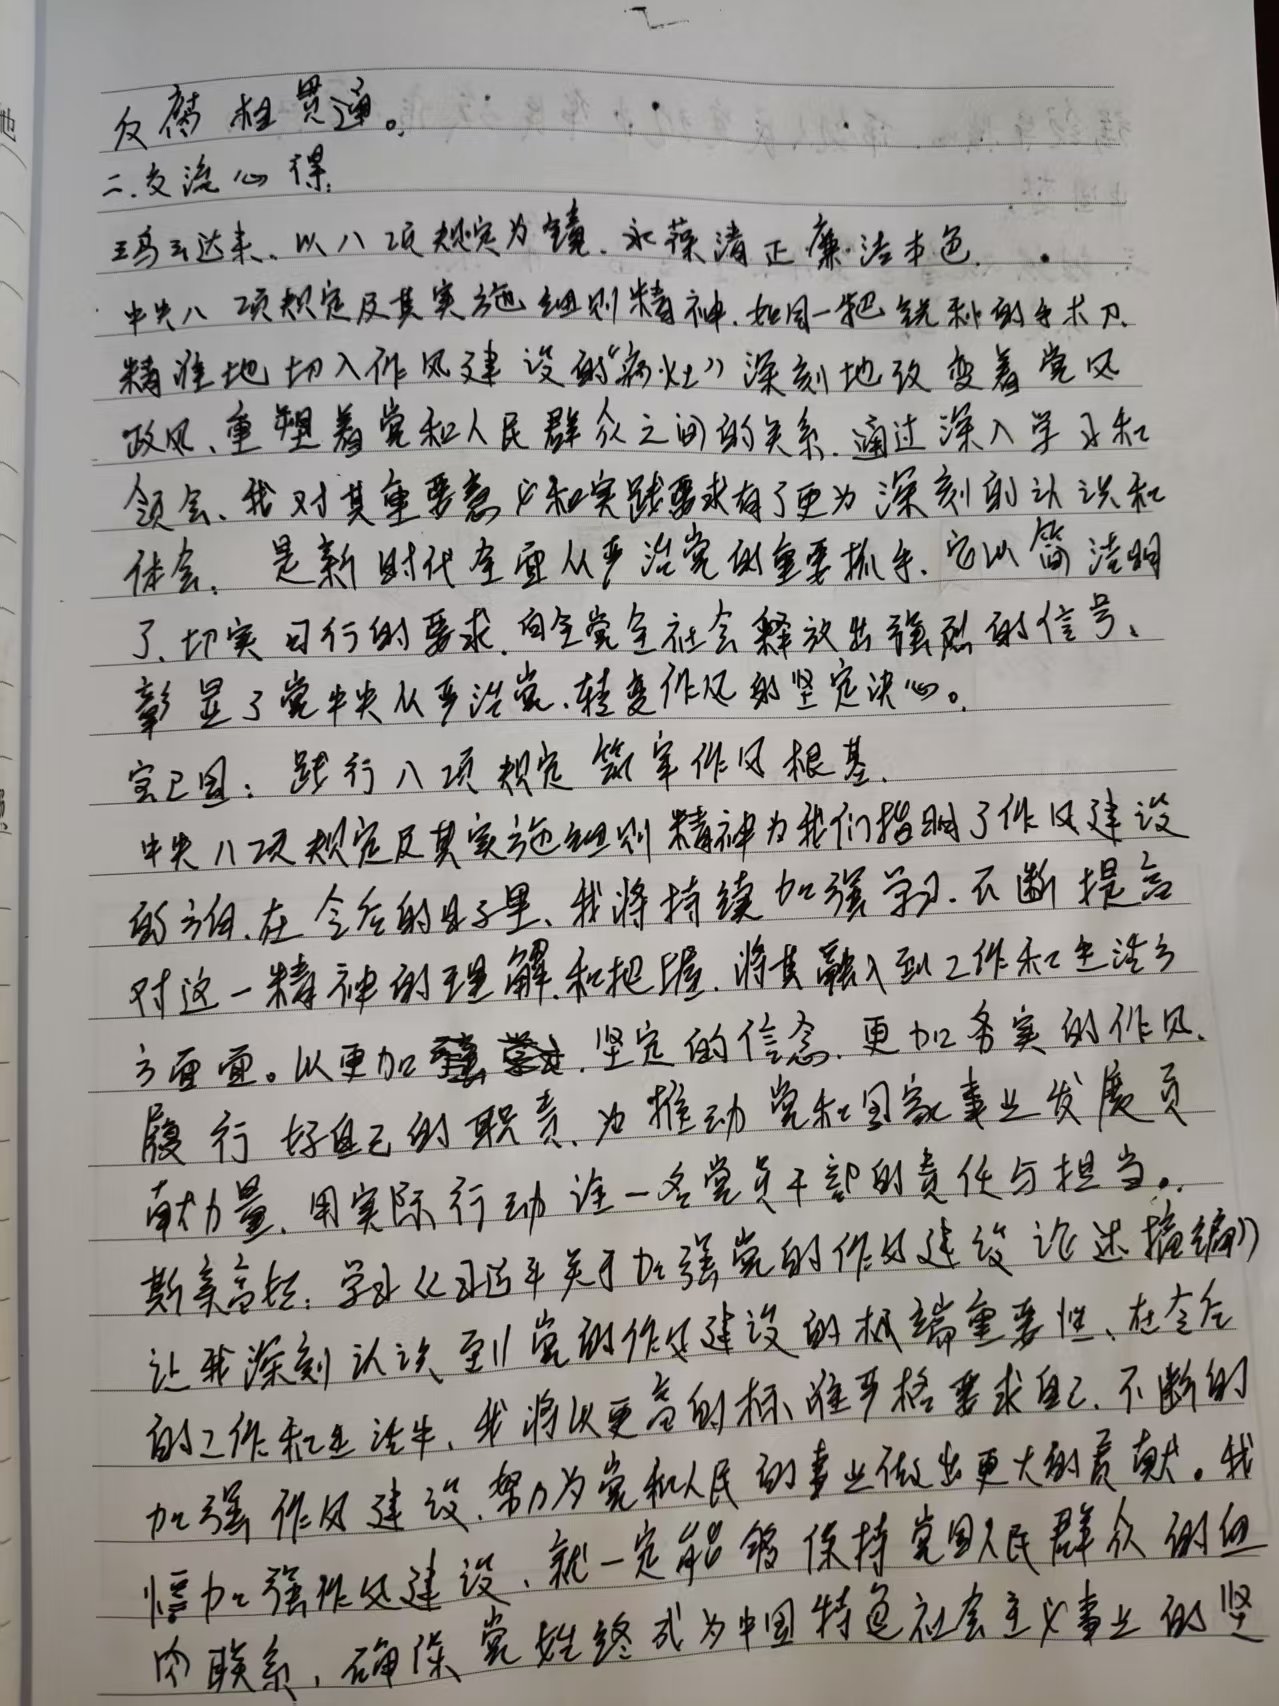 反腐相贯通。
二、交流心得:
玛云达来、以八项规定为镜、永葆清正廉洁本色.
中央八项规定及其实施细则精神、如同一把锐利的手术刀、
精准地切入作风建设的“病灶”深刻地改变着党风
政风、重塑着党和人民群众之间的关系、通过深入学习和
领会、我对其重要意义和实践要求有了更为深刻的认识和
体会、是新时代全面从严治党的重要抓手、它以简洁明
了、切实可行的要求、向全党全社会释放出强烈的信号、
彰显了党中央从严治党、转变作风的坚定决心。
宝卫国:践行八项规定 筑牢作风根基.
中央八项规定及其实施细则精神为我们指明了作风建设
的方向、在今后的日子里、我将持续加强学习、不断提高
对这一精神的理解、和把握、将其融入到工作和生活方
方面面。以更加坚定的信念、更加务实的作风、
履行好自己的职责、为推动党和国家事业发展贡
献力量、用实际行动诠一名党员干部的责任与担当。
斯亲高娃:学习《习近平关于加强党的作风建设论述摘编》
让我深刻认识到党的作风建设的极端重要性、在今后
的工作和生活中、我将以更高的标准严格要求自己、不断的
加强作风建设、努力为党和人民的事业做出更大的贡献。我
加强作风建设、就一定能够保持党同人民群众的血
肉联系、确保党始终成为中国特色社会主义事业的坚